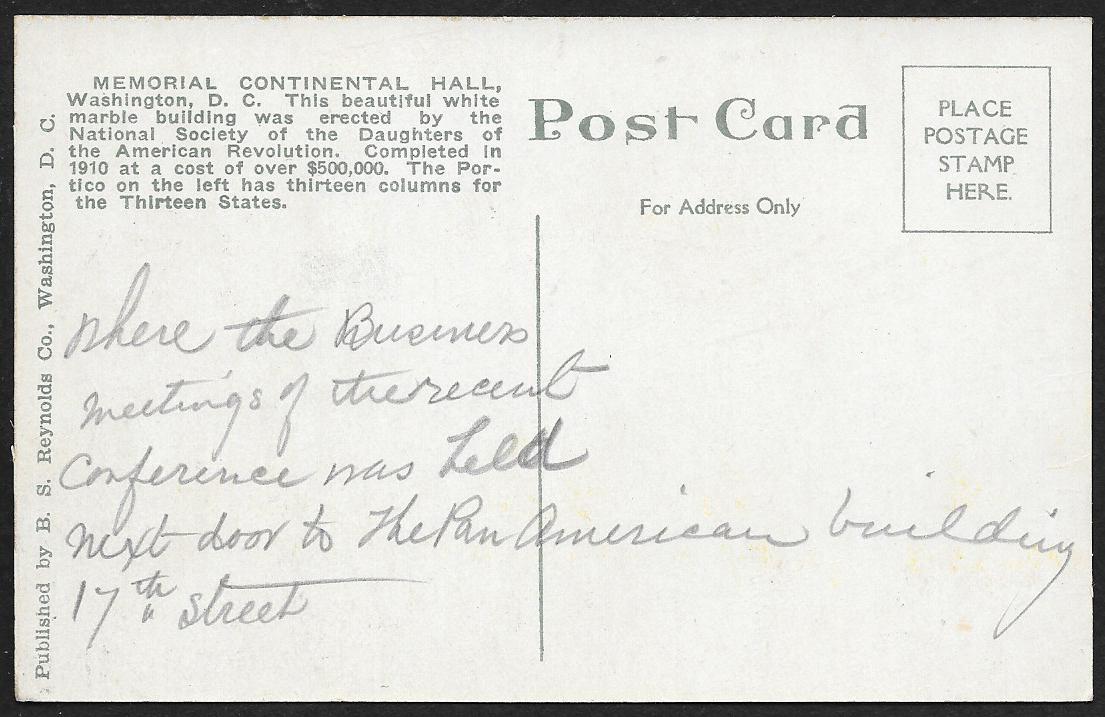 MEMORIAL CONTINENTAL HALL,
Washington, D. C. This beautiful white
marble building was erected by the
National Society of the Daughters of
the American Revolution. Completed in
1910 at a cost of over $500,000. The Por-
tico on the left has thirteen columns for
the Thirteen States.
Post Card
For Address Only
PLACE
POSTAGE
STAMP
HERE.
Published by B. S. Reynolds Co., Washington, D. C.
Where the Business
meetings of the recent
Conference was held
next door to The Pan American building
17th street